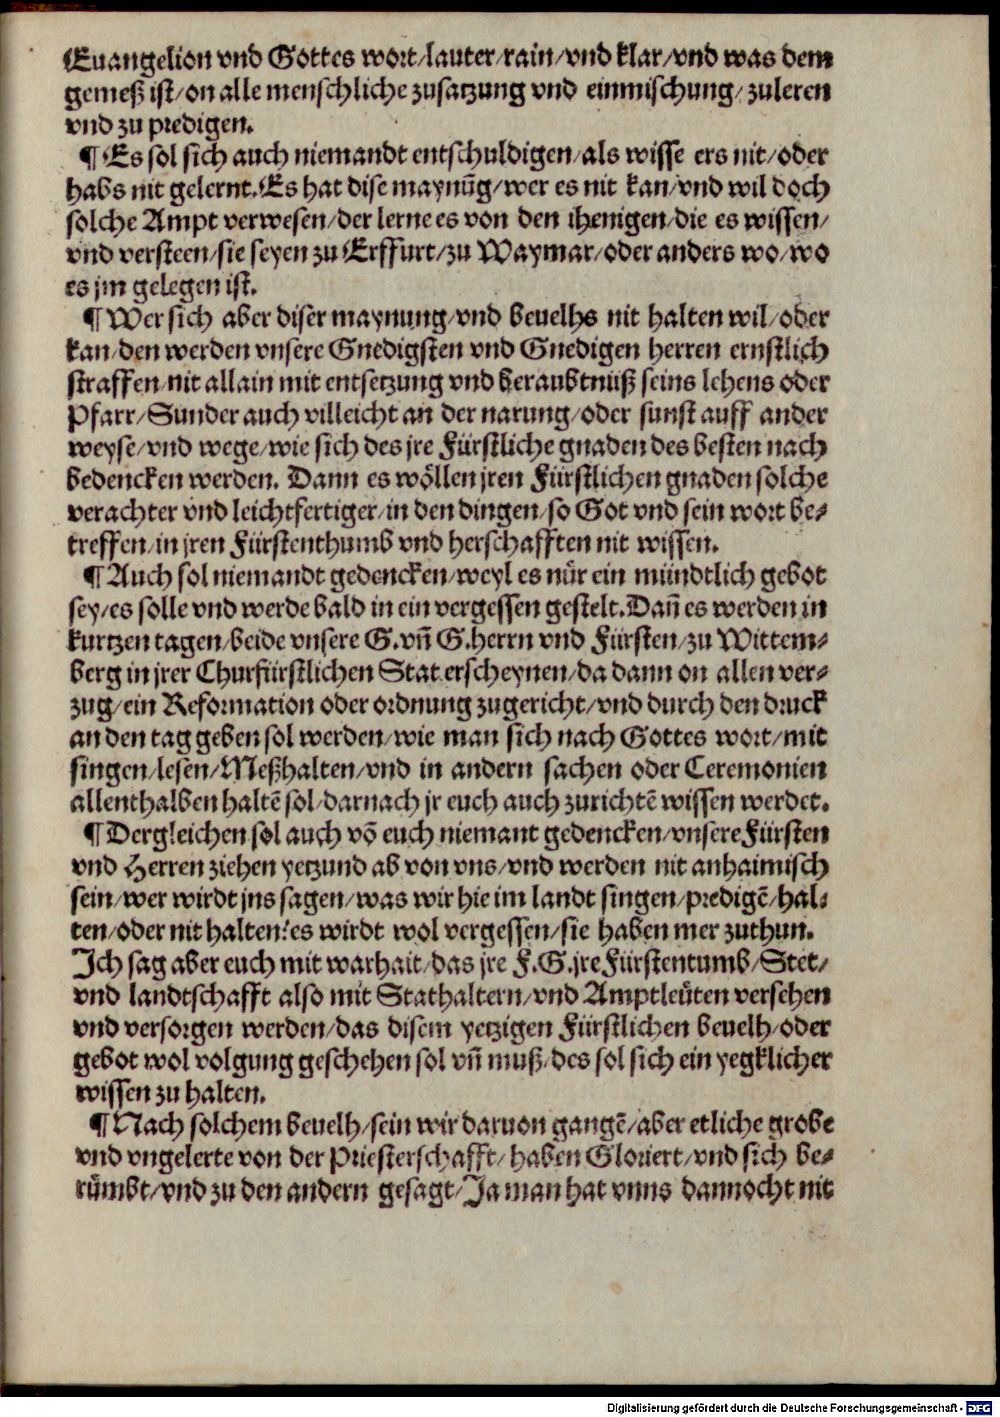 Euangelion vnd Gottes wort/lauter/rain/vnd klar/vnd was dem
gemeß ist/on alle menschliche zusatzung vnd einmischung/zuleren
vnd zu predigen.
¶ Es sol sich auch niemandt entschuldigen/als wisse ers nit/oder
habs nit gelernt. Es hat dise maynūg/wer es nit kan/vnd wil doch
solche Ampt verwesen/der lerne es von den ihenigen/die es wissen/
vnd versteen/sie seyen zu Erffurt/zu Waymar/oder anders wo/wo
es jm gelegen ist.
¶ Wer sich aber diser maynung/vnd beuelhs nit halten wil/oder
kan/den werden vnsere Gnedigsten vnd Gnedigen herren ernstlich
straffen/nit allain mit entsetzung vnd beraubtnüß seins lehens oder
Pfarr/Sunder auch villeicht an der narung/oder sunst auff ander
weyse/vnd wege/wie sich des jre Fürstliche gnaden des besten nach
bedencken werden. Dann es wöllen jren Fürstlichen gnaden solche
verachter vnd leichtfertiger/in den dingen/so Got vnd sein wort be-
treffen/in jren Fürstenthumb vnd herschafften nit wissen.
¶ Auch sol niemandt gedencken/weyl es nür ein mündtlich gebot
sey/es solle vnd werde bald in ein vergessen gestelt. Dañ es werden in
kurtzen tagen/beide vnsere G.vñ G.herrn vnd Fürsten/zu Wittem-
berg in jrer Churfürstlichen Stat erscheynen/da dann on allen ver-
zug/ein Reformation oder ordnung zugericht/vnd durch den druck
an den tag geben sol werden/wie man sich nach Gottes wort/mit
singen/lesen/Meßhalten/vnd in andern sachen oder Ceremonien
allenthalben haltē sol/darnach jr euch auch zurichtē wissen werdet.
¶ Dergleichen sol auch vō euch niemant gedencken/vnsere Fürsten
vnd Herren ziehen yetzund ab von vns/vnd werden nit anhaimisch
sein/wer wirdt jns sagen/was wir hie im landt singen/predigē/hal-
ten/oder nit halten? es wirdt wol vergessen/sie haben mer zuthun.
Ich sag aber euch mit warhait/das jre F.G.jre Fürstentumb/Stet/
vnd landtschafft also mit Stathaltern/vnd Amptleüten versehen
vnd versorgen werden/das disem yetzigen Fürstlichen beuelh/oder
gebot wol volgung geschehen sol vñ muß/des sol sich ein yegklicher
wissen zu halten.
¶ Nach solchem beuelh/sein wir daruon gangē/aber etliche grobe
vnd vngelerte von der Priesterschafft/haben Gloriert/vnd sich be-
rümbt/vnd zu den andern gesagt/Ja man hat vnns dannocht nit
Digitalisierung gefördert durch die Deutsche Forschungsgemeinschaft - DFG